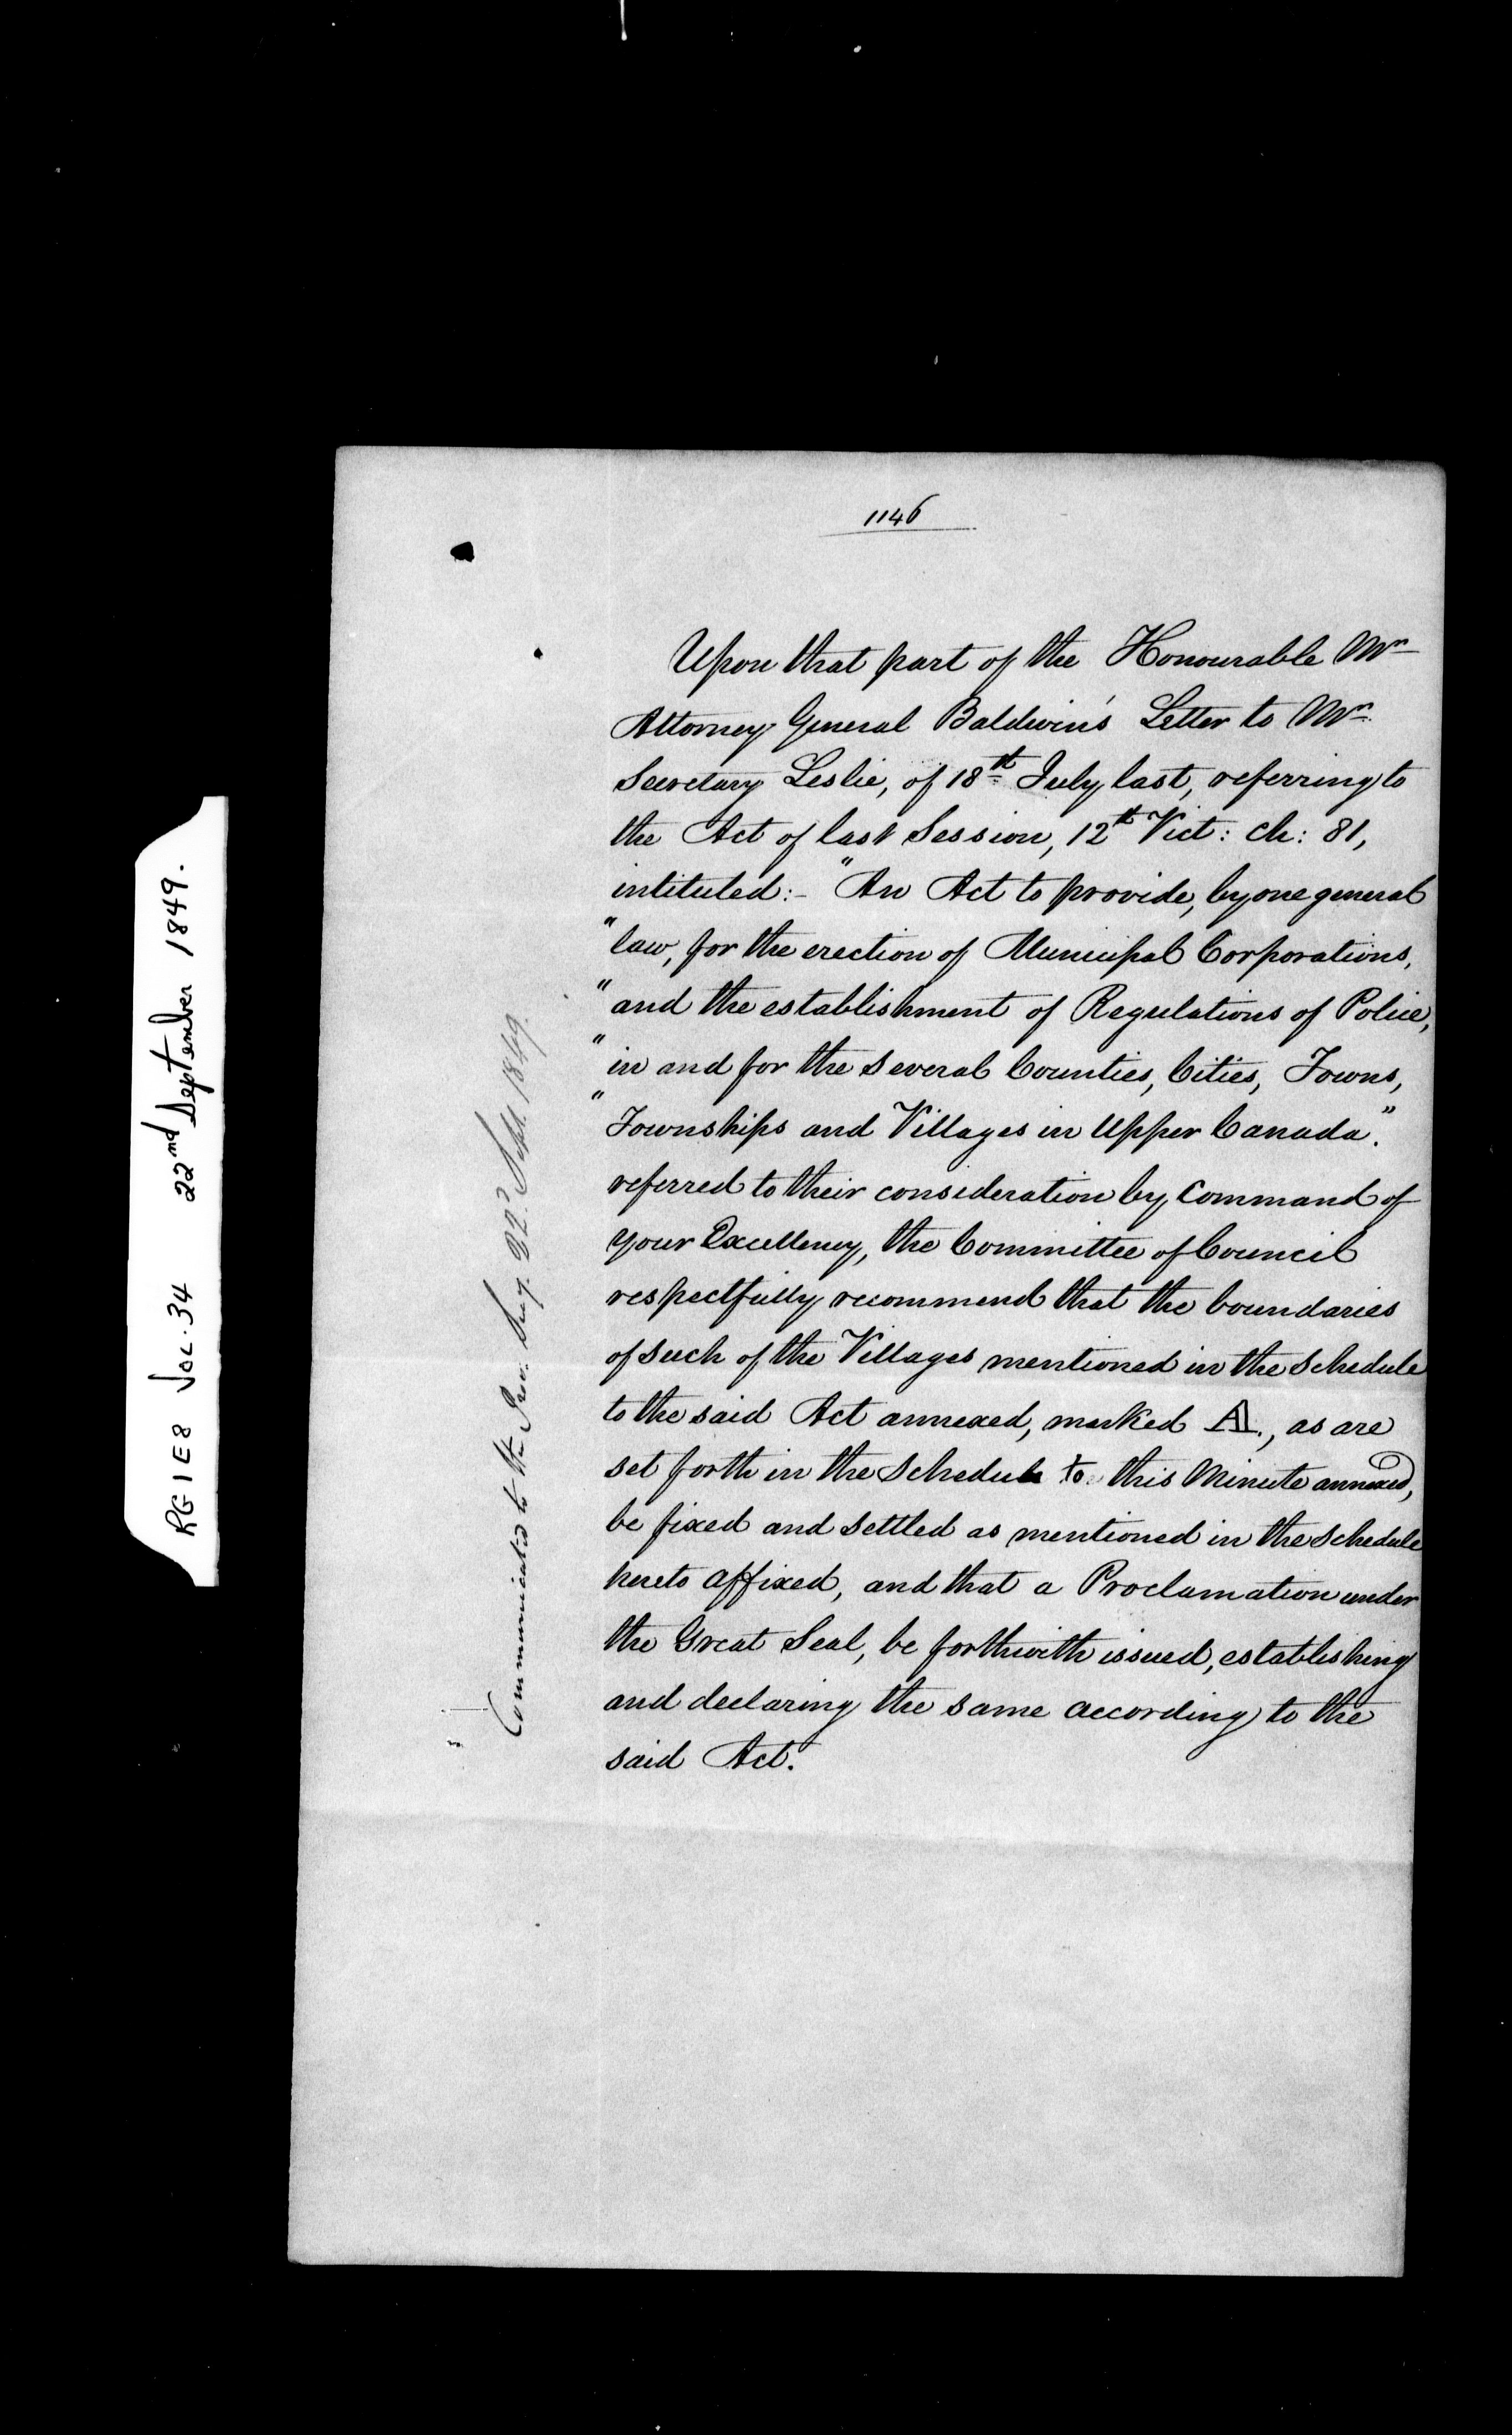 RG 1 E8 Vol. 34 22nd September 1849.
1146
Upon that part of the Honourable Mr
Attorney General Baldwin's Letter to Mr
Secretary Leslie, of 18th July last, referring to
the Act of last Session, 12th Vict: Ch: 81,
intituled:- "An Act to provide, by one general
"law, for the erection of Municipal Corporations,
"and the establishment of Regulations of Police,
"in and for the several Counties, Cities, Towns,
"Townships and Villages in Upper Canada".
referred to their consideration by Command of
Your Excellency, the Committee of Council
respectfully recommend that the boundaries
of such of the Villages mentioned in the Schedule
to the said Act annexed, marked A., as are
set forth in the Schedule to this Minute annexed,
be fixed and settled as mentioned in the Schedule
hereto affixed, and that a Proclamation under
the Great Seal, be forthwith issued, establishing
and declaring the same according to the
said Act.
Communicated to the 22d Sept. 1849.